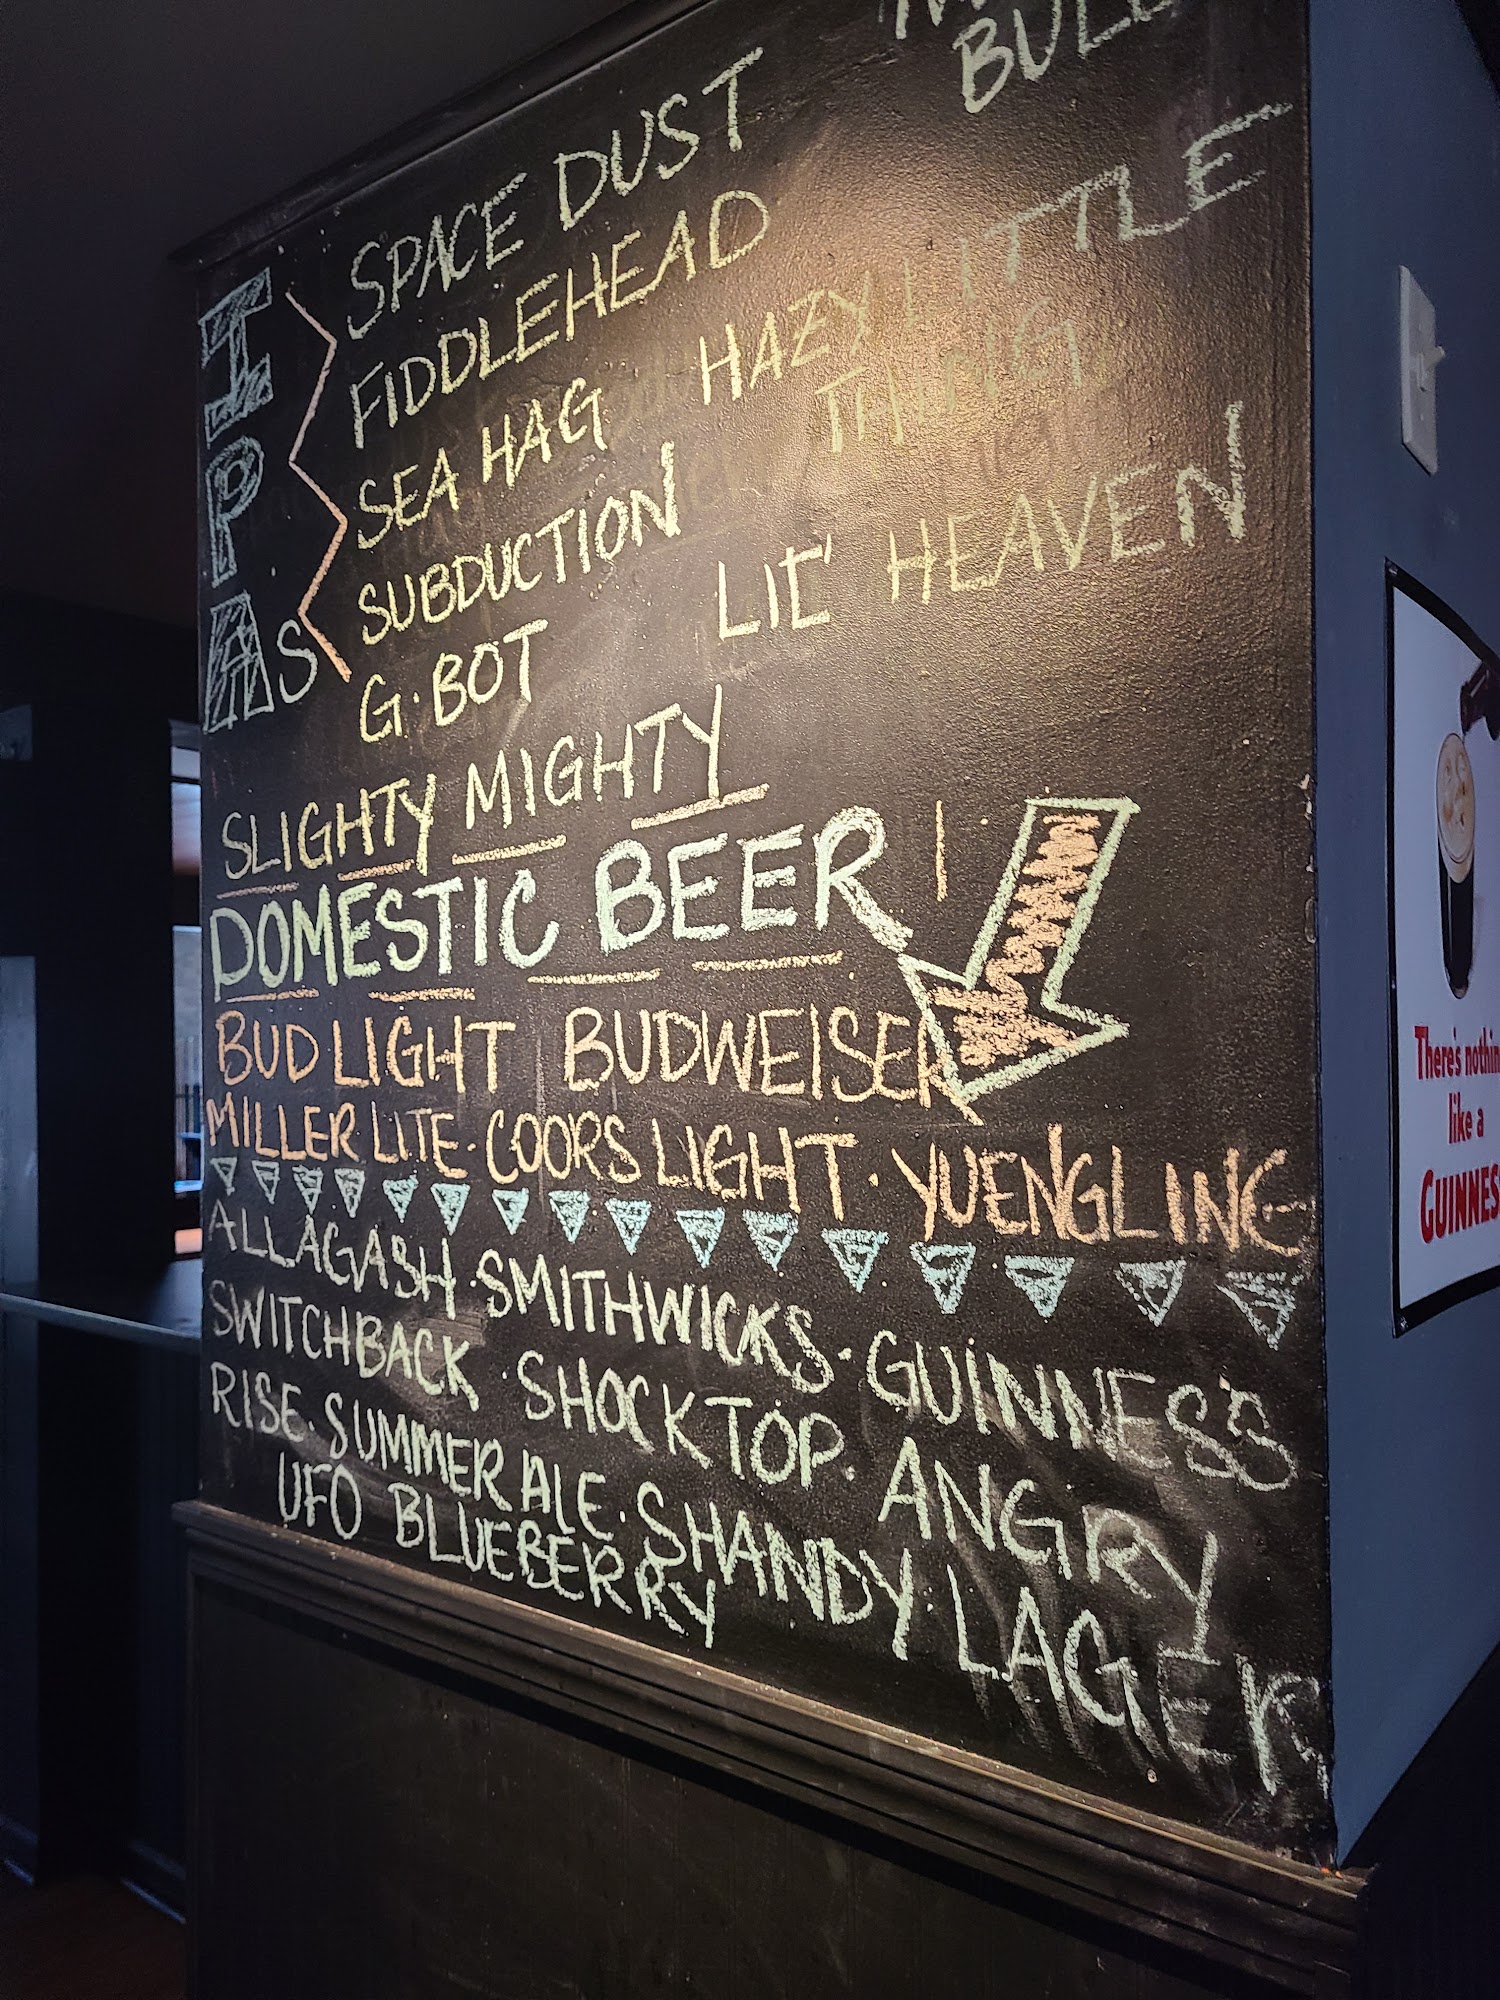 BULL
SPACE DUST
FIDDLEHEAD
HAZY LITTLE
THING
SEA HAG
SUBDUCTION
LIL' HEAVEN
G·BOT
IPAS
SLIGHTY MIGHTY
DOMESTIC BEER
BUD LIGHT BUDWEISER
MILLER LITE · COORS LIGHT · YUENGLING
ALLAGASH · SMITHWICKS · GUINNESS
SWITCHBACK · SHOCKTOP · ANGRY
RISE · SUMMER ALE · SHANDY · LAGER
UFO BLUEBERRY
There's nothin
like a
GUINNES